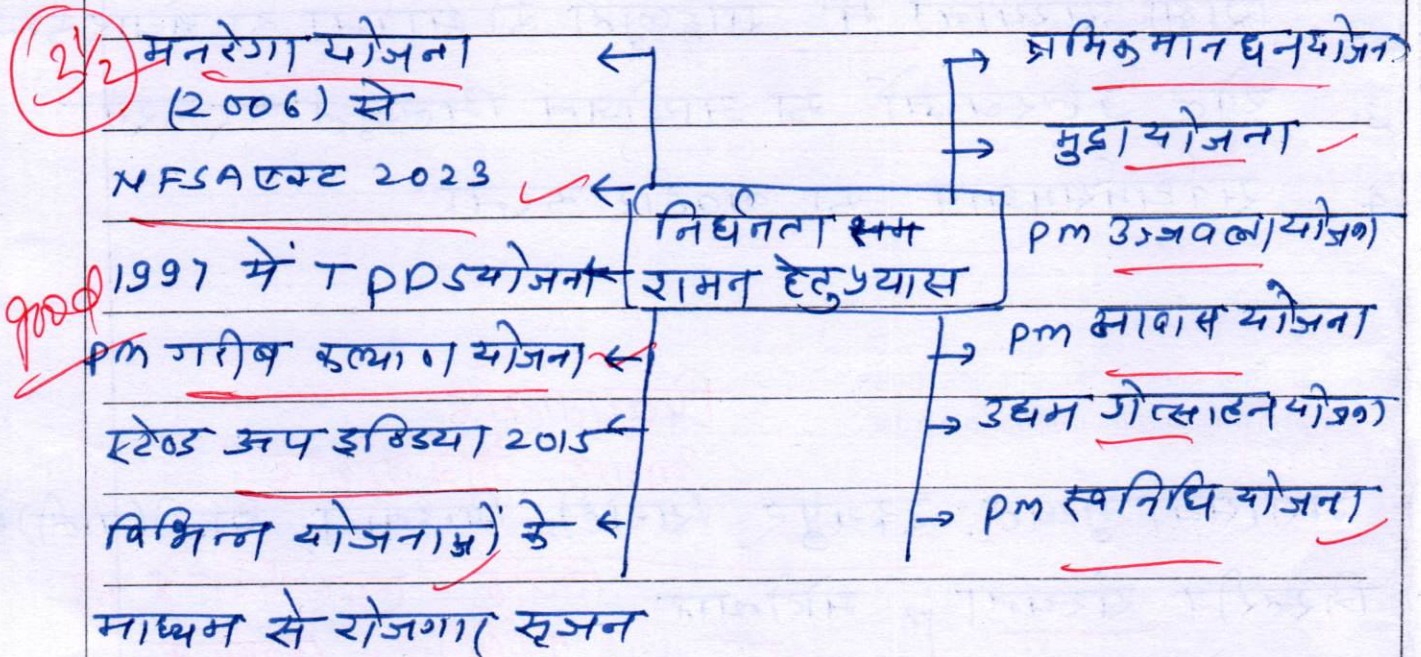 2½
मनरेगा योजना
(2006) से
NFSA एक्ट 2023
1997 में TPDS योजना
good
PM गरीब कल्याण योजना
स्टेण्ड अप इण्डिया 2015
विभिन्न योजनाओं के
माध्यम से रोजगार सृजन
निर्धनता
शमन हेतु प्रयास
श्रमिक मानधन योजना
मुद्रा योजना
PM उज्जवला योजना
PM आवास योजना
उद्यम प्रोत्साहन योजना
PM स्वनिधि योजना